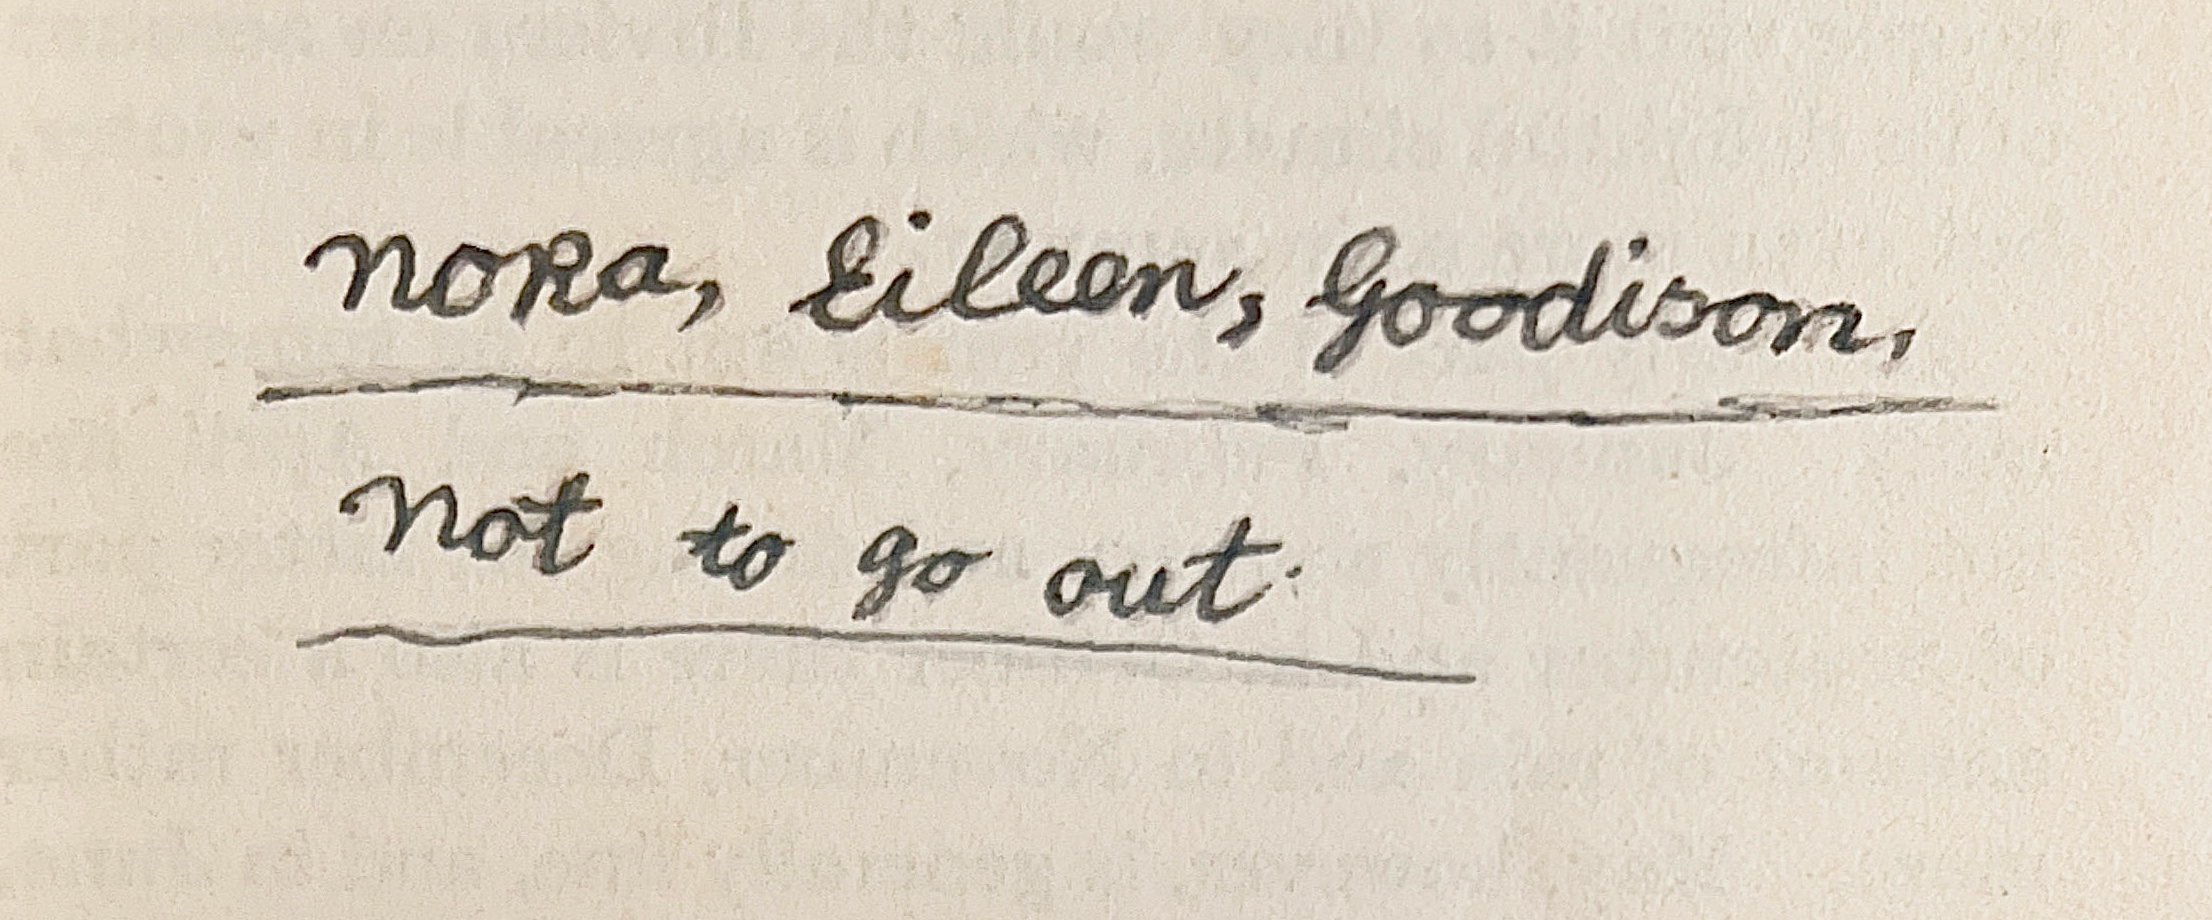 Nora, Eileen, Goodison,
Not to go out.